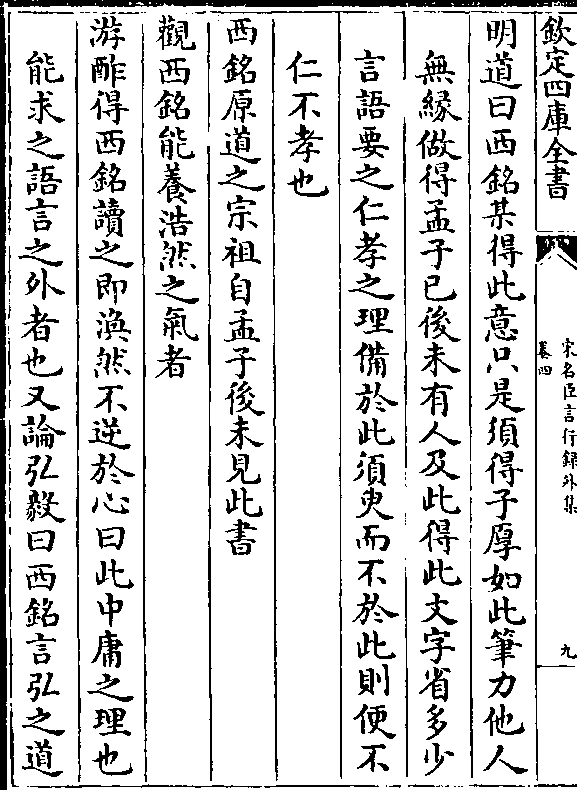 欽定四庫全書
宋名臣言行録外集
卷四
九
明道曰西銘某得此意只是須得子厚如此筆力他人
無緣做得孟子已後未有人及此得此文字省多少
言語要之仁孝之理備於此須臾而不於此則便不
仁不孝也
西銘原道之宗祖自孟子後未見此書
觀西銘能養浩然之氣者
游酢得西銘讀之即渙然不逆於心曰此中庸之理也
能求之語言之外者也又論弘毅曰西銘言弘之道